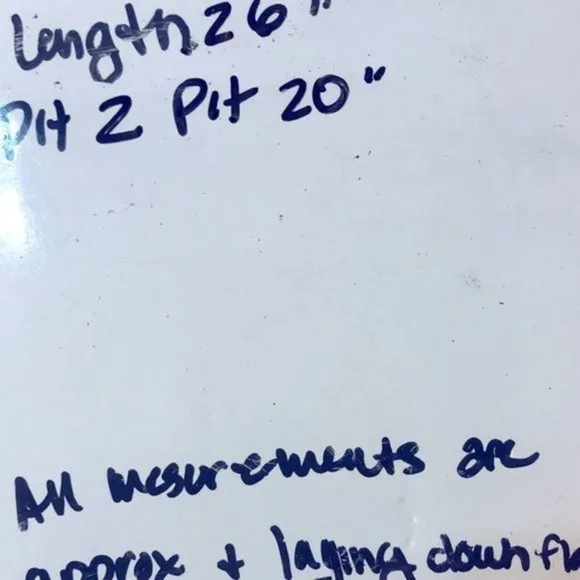 Length 26"
Pit 2 Pit 20"
All mesurements are
approx + laying down